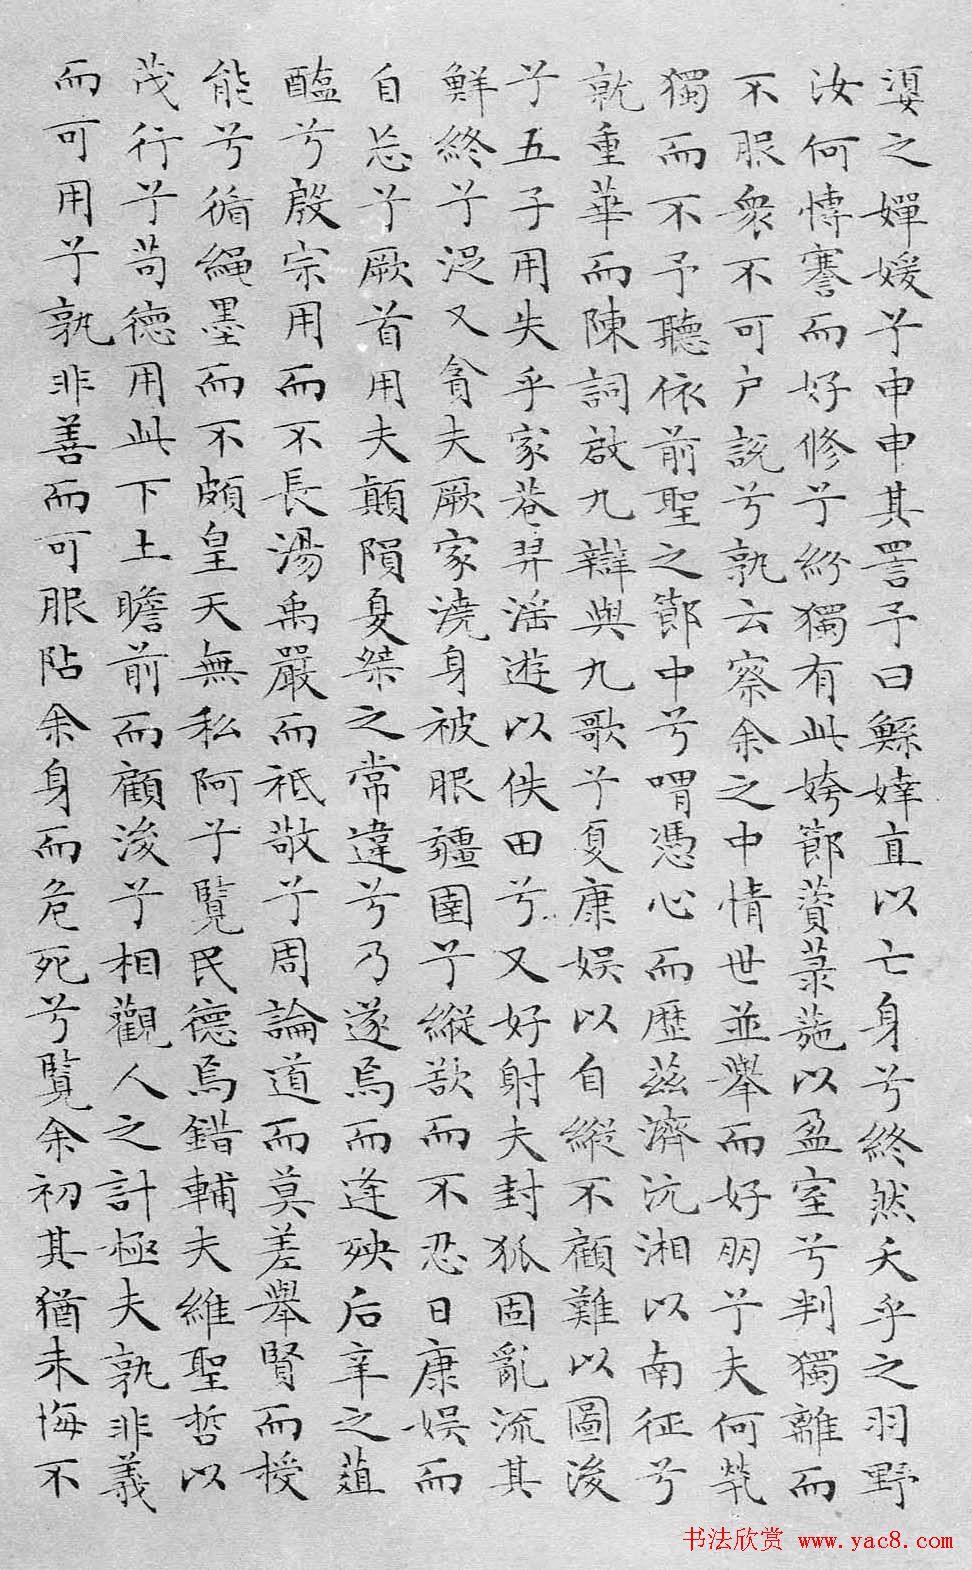 媭之嬋媛兮申申其詈予曰鯀婞直以亡身兮終然夭乎之羽野
汝何愽謇而好修兮紛獨有此姱節薋菉葹以盈室兮判獨離而
不服衆不可户說兮孰云察余之中情世並舉而好朋兮夫何煢
獨而不予聽依前聖之節中兮喟憑心而歷茲濟沅湘以南征兮
就重華而陳詞啟九辯與九歌兮夏康娛以自縱不顧難以圖後
兮五子用失乎家巷羿淫遊以佚田兮又好射夫封狐固亂流其
鮮終兮浞又貪夫厥家澆身被服彊圉兮縱欲而不忍日康娛而
自忘兮厥首用夫顛隕夏桀之常違兮乃遂焉而逢殃后辛之菹
醢兮殷宗用而不長湯禹嚴而祗敬兮周論道而莫差舉賢而授
能兮循繩墨而不頗皇天無私阿兮覽民德焉錯輔夫維聖哲以
茂行兮苟德用此下土瞻前而顧後兮相觀人之計極夫孰非義
而可用兮孰非善而可服阽余身而危死兮覽余初其猶未悔不
书法欣赏 www.yac8.com